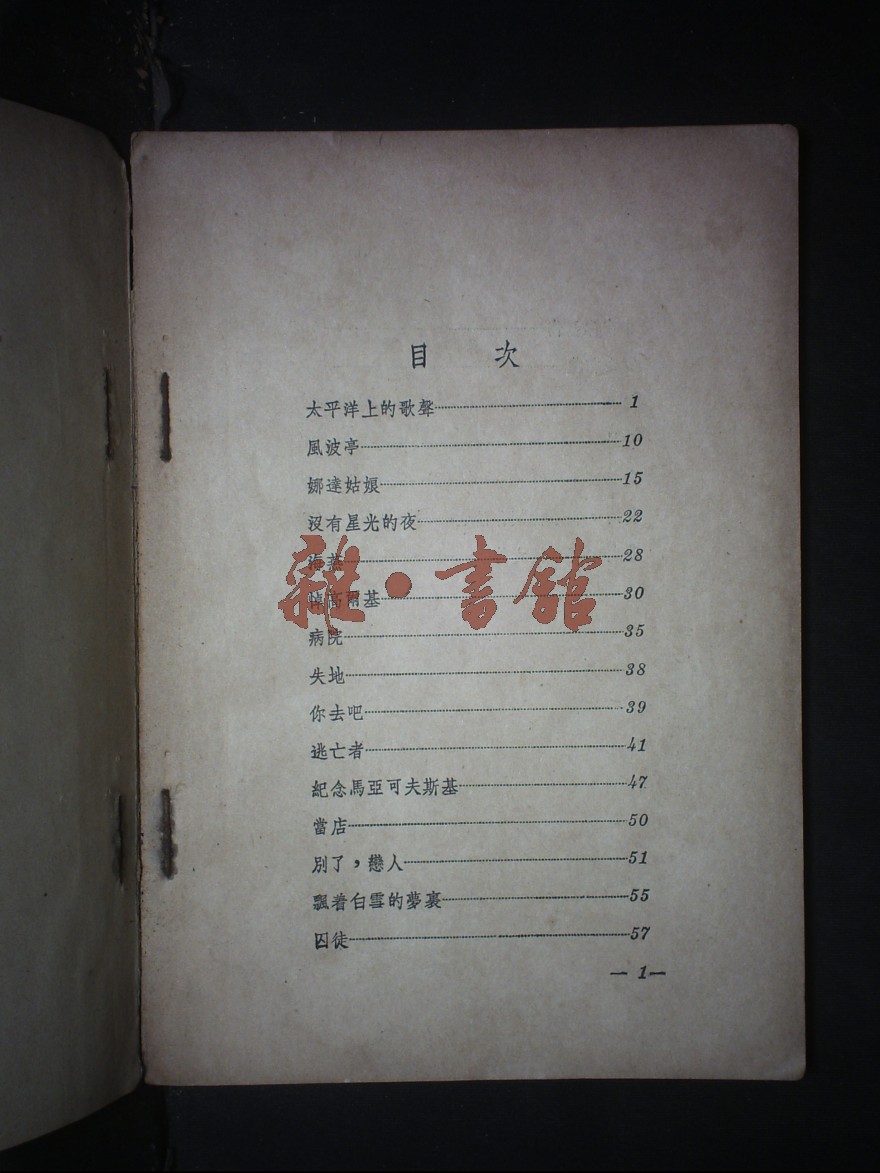 目 次
太平洋上的歌聲 1
風波亭 10
娜達姑娘 15
沒有星光的夜 22
海燕 28
悼高爾基 30
雜·書館
病院 35
失地 38
你去吧 39
逃亡者 41
紀念馬亞可夫斯基 47
當店 50
別了，戀人 51
飄着白雪的夢裏 55
囚徒 57
— 1—